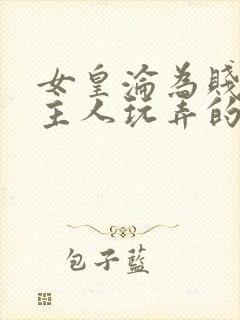 女皇淪為賤
主人玩弄的
包子藍